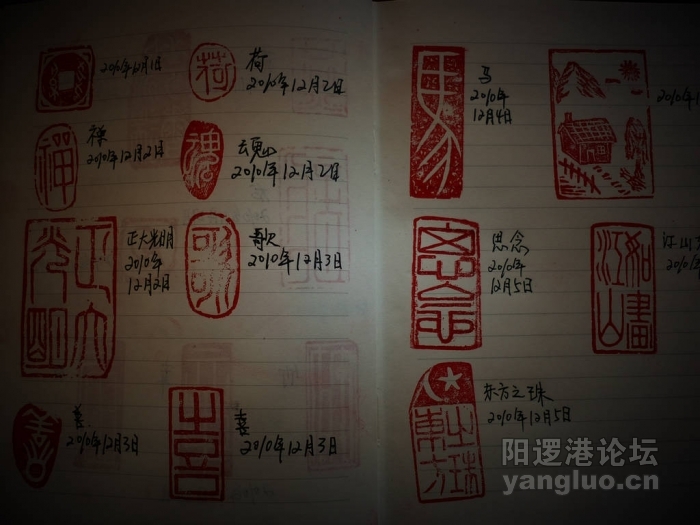 2010年12月1日
荷
荷
2010年12月2日
禪
禅
2010年12月2日
魂
魂
2010年12月2日
正大光明
正大光明
2010年
12月2日
歌
歌
2010年12月3日
善
善
2010年12月3日
喜
喜
2010年12月3日
馬
马
2010年
12月4日
2010年1
思念
思念
2010年
12月5日
江山如畫
江山
2010年
東方之珠
东方之珠
2010年12月5日
阳逻港论坛
yangluo.cn